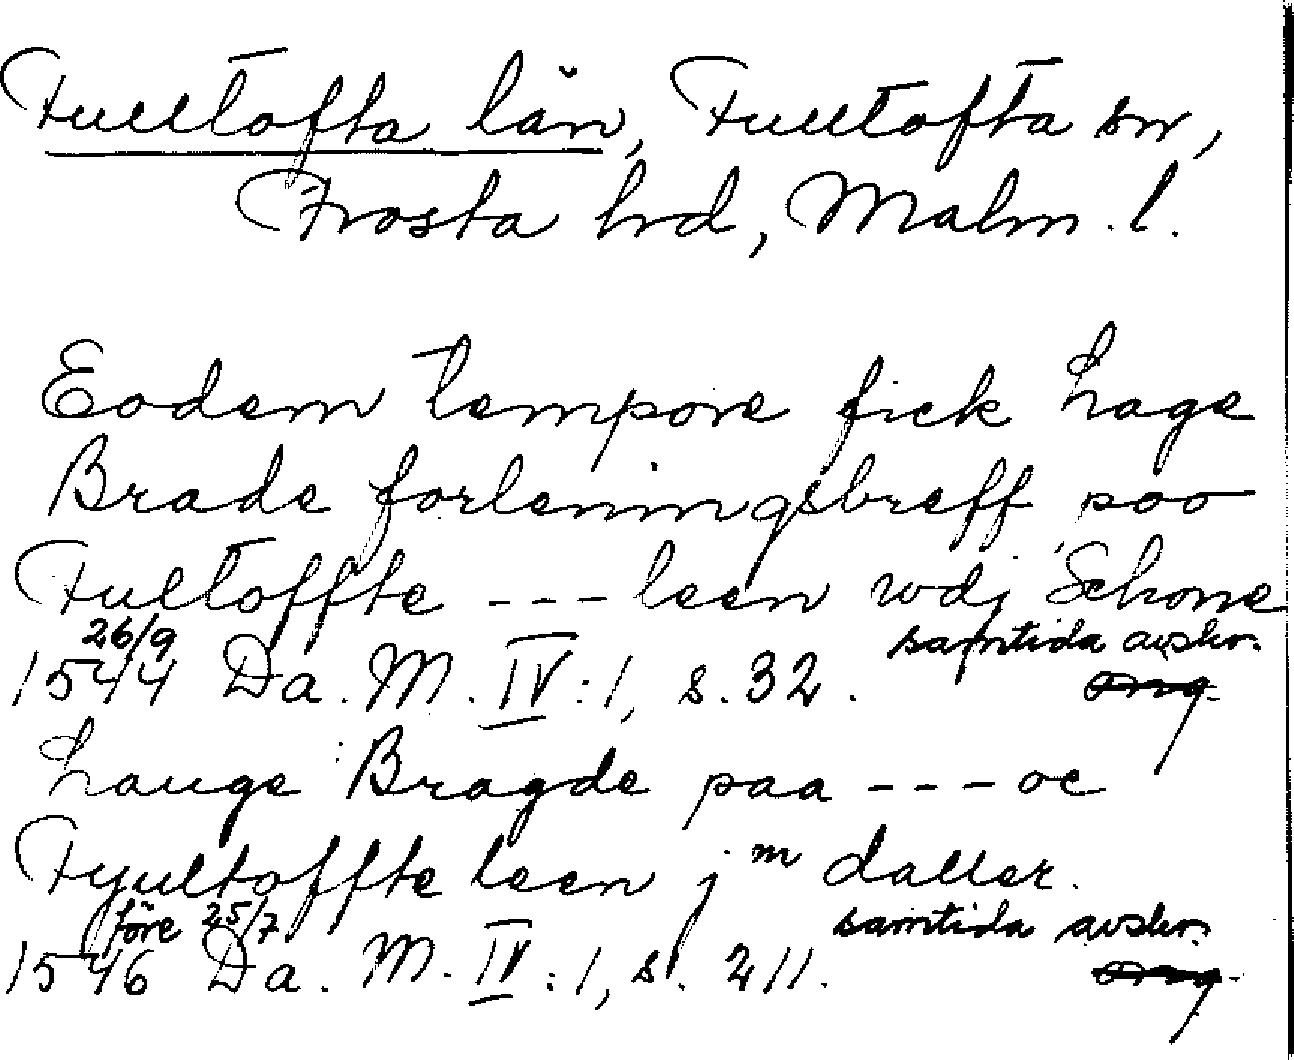 Fulltofta län, Fulltofta sn,
Frosta hrd, Malm. l.
Eodem tempore fick Lage
Brade forleningsbreff poo
Fultoffte --- leen wdj Schone
26/9 samtida avskr.
1544 Da. M. IV:1, s. 32. orig.
Lauge Bragde paa --- oc
Fyultoffte leen jm daller.
före 25/7 samtida avskr.
1546 Da. M. IV:1, s. 211. orig.